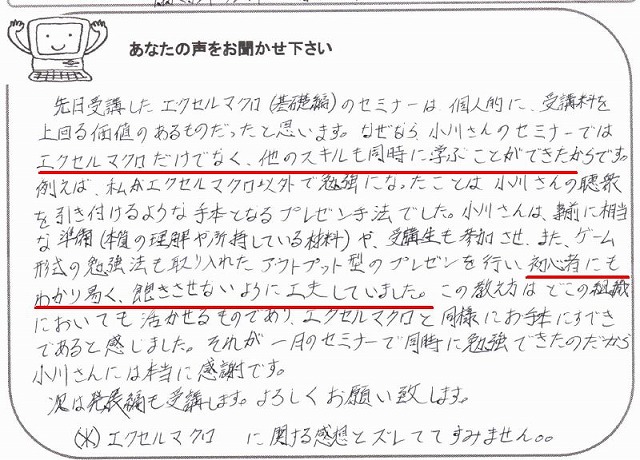 あなたの声をお聞かせ下さい
先日受講した エクセルマクロ(基礎編)のセミナーは、個人的に、受講料を
上回る価値のあるものだったと思います。なぜなら、小川さんのセミナーでは
エクセルマクロだけでなく、他のスキルも同時に学ぶことができたからです。
例えば、私がエクセルマクロ以外で勉強になったことは 小川さんの聴衆
を引き付けるような手本となるプレゼン手法でした。小川さんは、事前に相当
な準備(本質の理解や所持している材料)や、受講生も参加させ、また、ゲーム
形式の勉強法も取り入れた アウトプット型のプレゼンを行い、初心者にも
わかり易く、飽きさせないように工夫していました。この教え方は どこの組織
においても 活かせるものであり、エクセルマクロと 同様にお手本にすべき
であると感じました。それが 一月のセミナーで同時に勉強できたのだから
小川さんには本当に感謝です。
次は発展編も受講します。よろしくお願い致します。
(※)エクセルマクロ に関する感想とズレててすみません。。